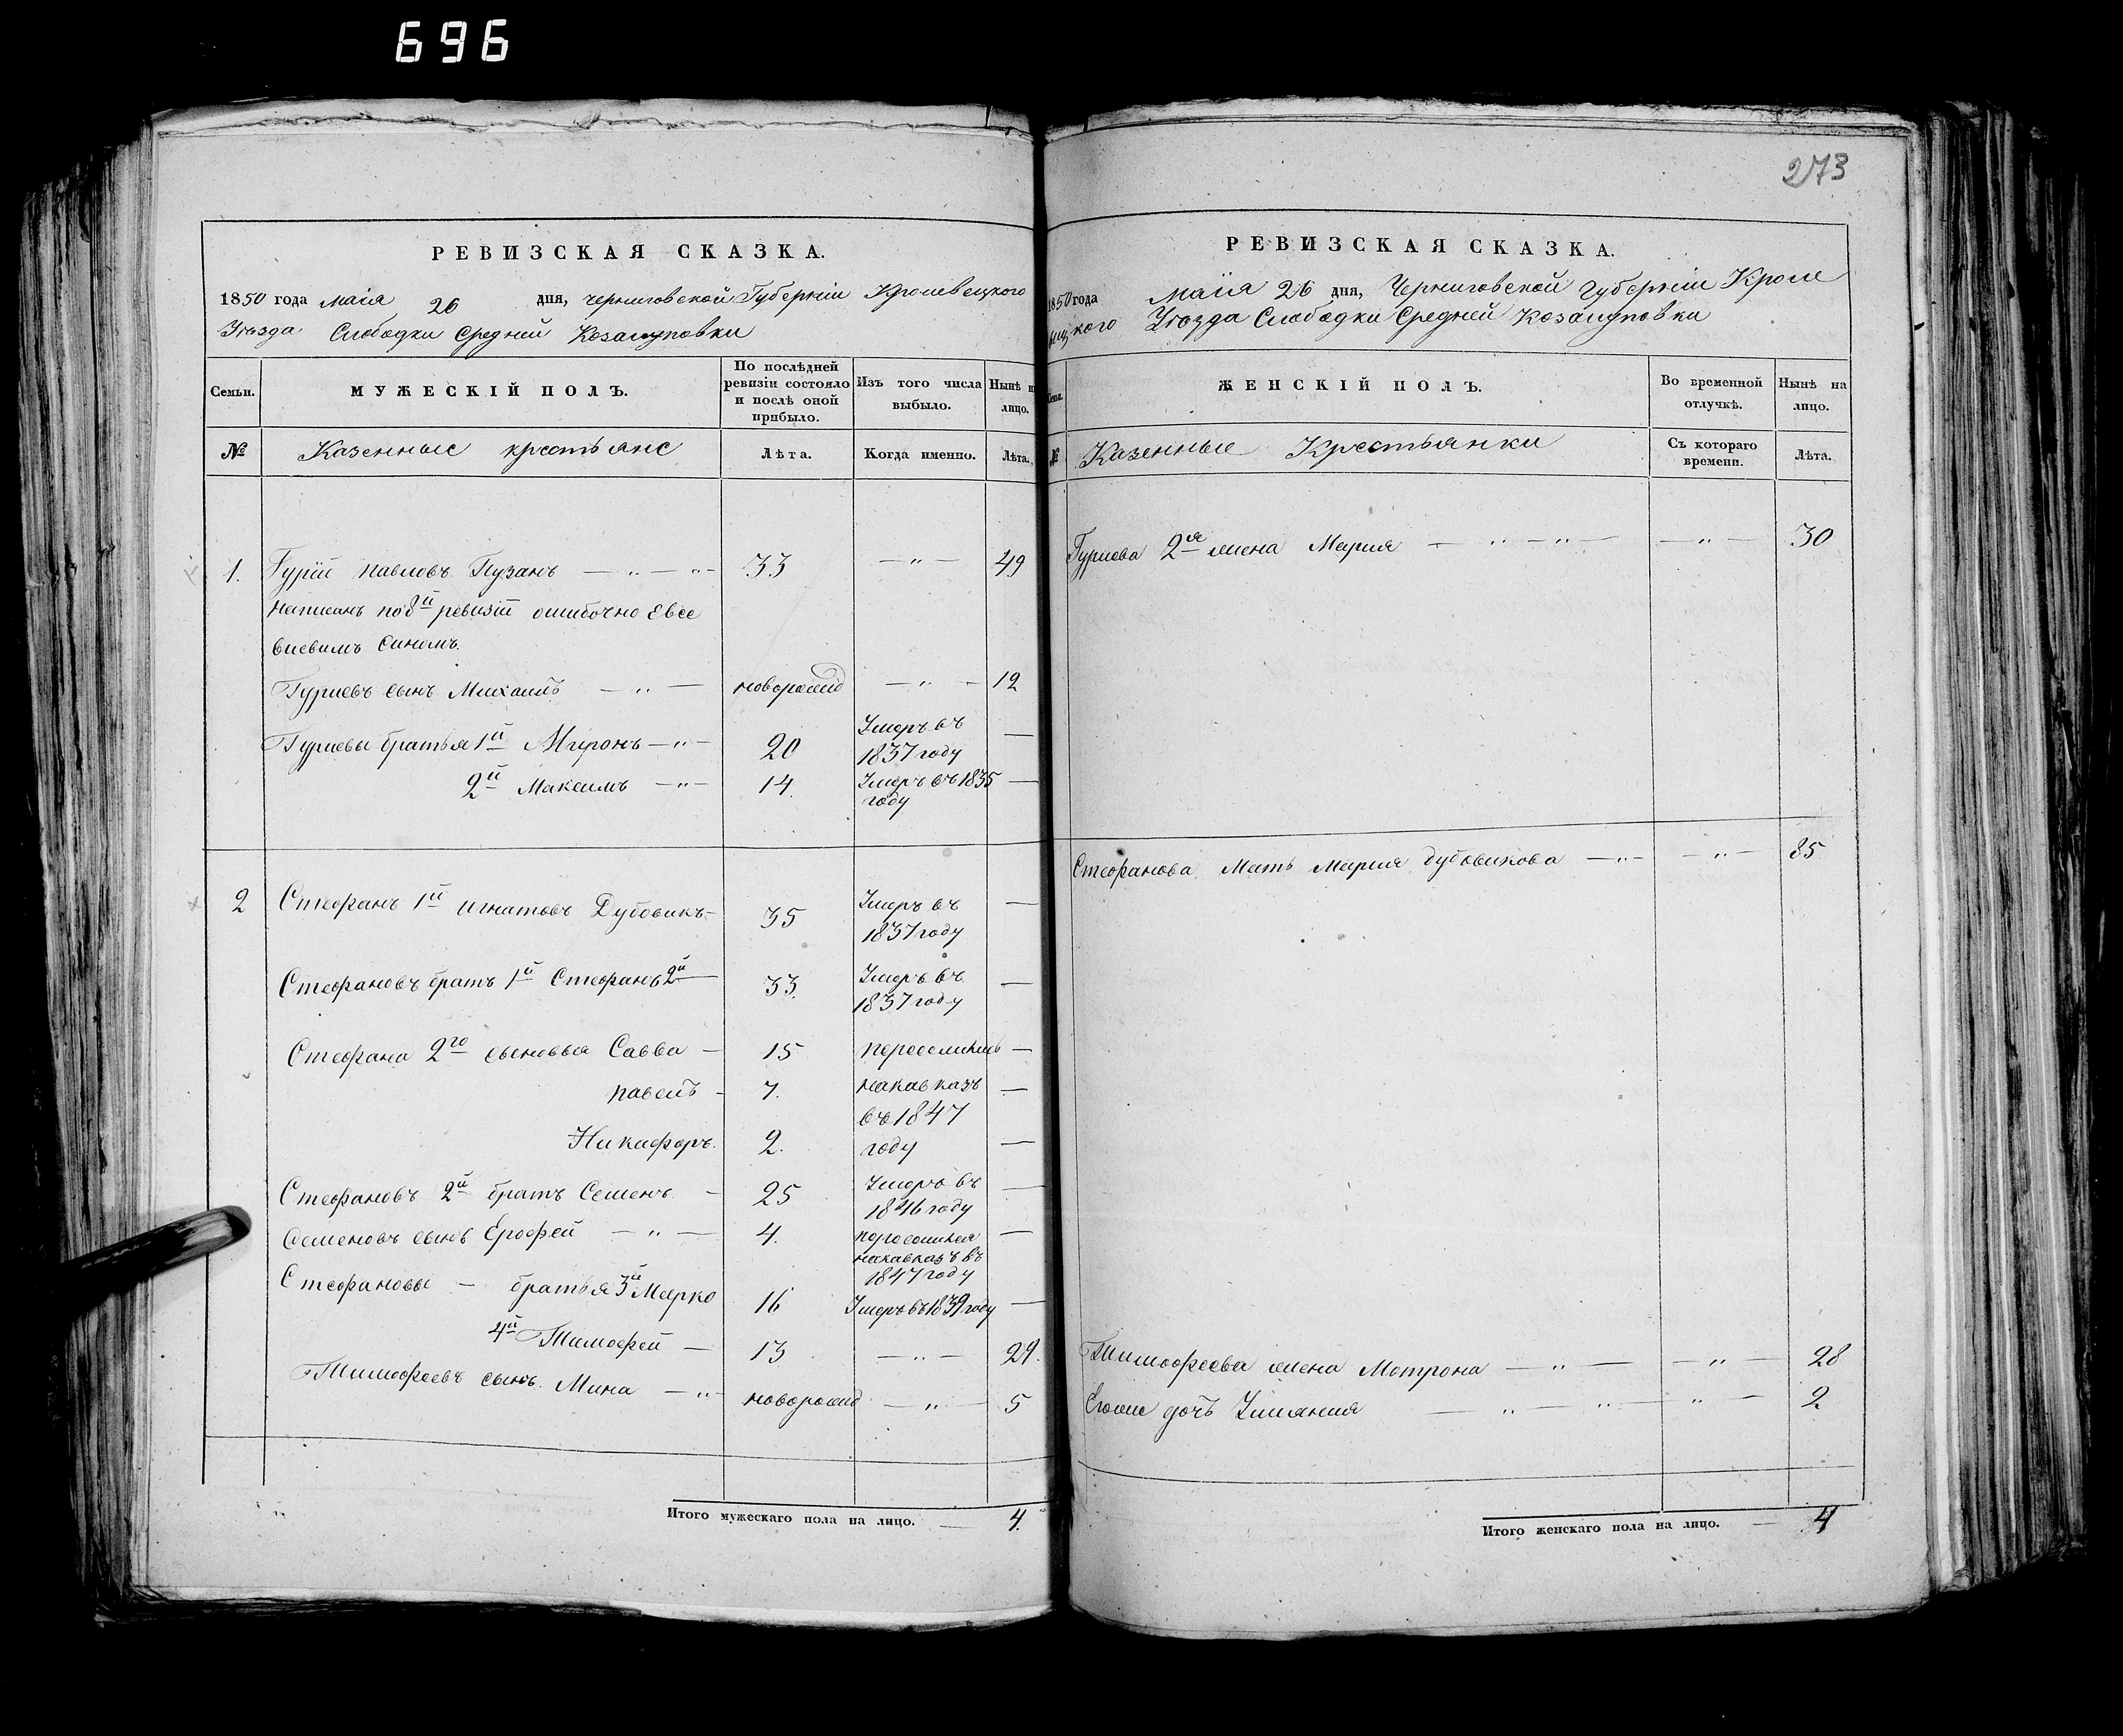 696
РЕВИЗСКАЯ СКАЗКА.
1850 года маія 26 дня, Черниговской Губерніи Кролевецкого
Уѣзда Слободки Средней Козацуповки
Семьи. МУЖЕСКІЙ ПОЛЪ. По послѣдней ревизіи состояло и послѣ оной прибыло. Изъ того числа выбыло. Нынѣ н лицо.
№ Казенные крестьяне Лѣта. Когда именно. Лѣта.
1. Гурій Павловъ Пузанъ — „ — „ — 33 — „ — 49
написанъ по 8й ревизіи ошибочно Евсе
виевимъ синомъ.
Гуриевъ сынъ Михаилъ — „ — новорожд — „ — 12
Гуриевы братья 1й Миронъ — „ — 20 Умеръ въ 1837 году —
2й Максимъ — „ — 14. Умеръ въ 1835 году —
2 Стефанъ 1й Игнатовъ Дубовикъ — 35 Умеръ въ 1837 году —
Стефановъ братъ 1й Стефанъ 2й 33. Умеръ въ 1837 году —
Стефана 2го сыновья Савва — 15 переселились —
Павелъ — 7. на кавказъ —
въ 1847
Никифоръ. 2. году —
Стефановъ 2й братъ Семенъ — 25 Умеръ въ 1846 году —
Семеновъ сынъ Ерофей — „ — 4. переселился на кавказъ въ 1847 году —
Стефановы — братья 3й Марко 16 Умеръ въ 1839 году —
4й Тимофей — 13 — „ — 29.
Тимофеевъ сынъ Мина — „ — новорожд — „ — 5
Итого мужескаго пола на лицо. — 4.
273
РЕВИЗСКАЯ СКАЗКА.
1850 года Маія 26 дня, Черниговской Губерніи Кроле
вецкого Уѣзда Слободки Средней Козацуповки
Семьи. ЖЕНСКІЙ ПОЛЪ. Во временной отлучкѣ. Нынѣ на лицо.
№ Казенные Крестьянки Съ котораго времени. Лѣта.
Гуриева 2я жена Мария — „ — „ — — „ — 30
Стефанова Мать Мария Дубовикова — „ — — „ — 85
Тимофеева жена Мотрона — „ — — „ — 28
Егоже дочь Улияния — „ — „ — „ — 2
Итого женскаго пола на лицо. — 4